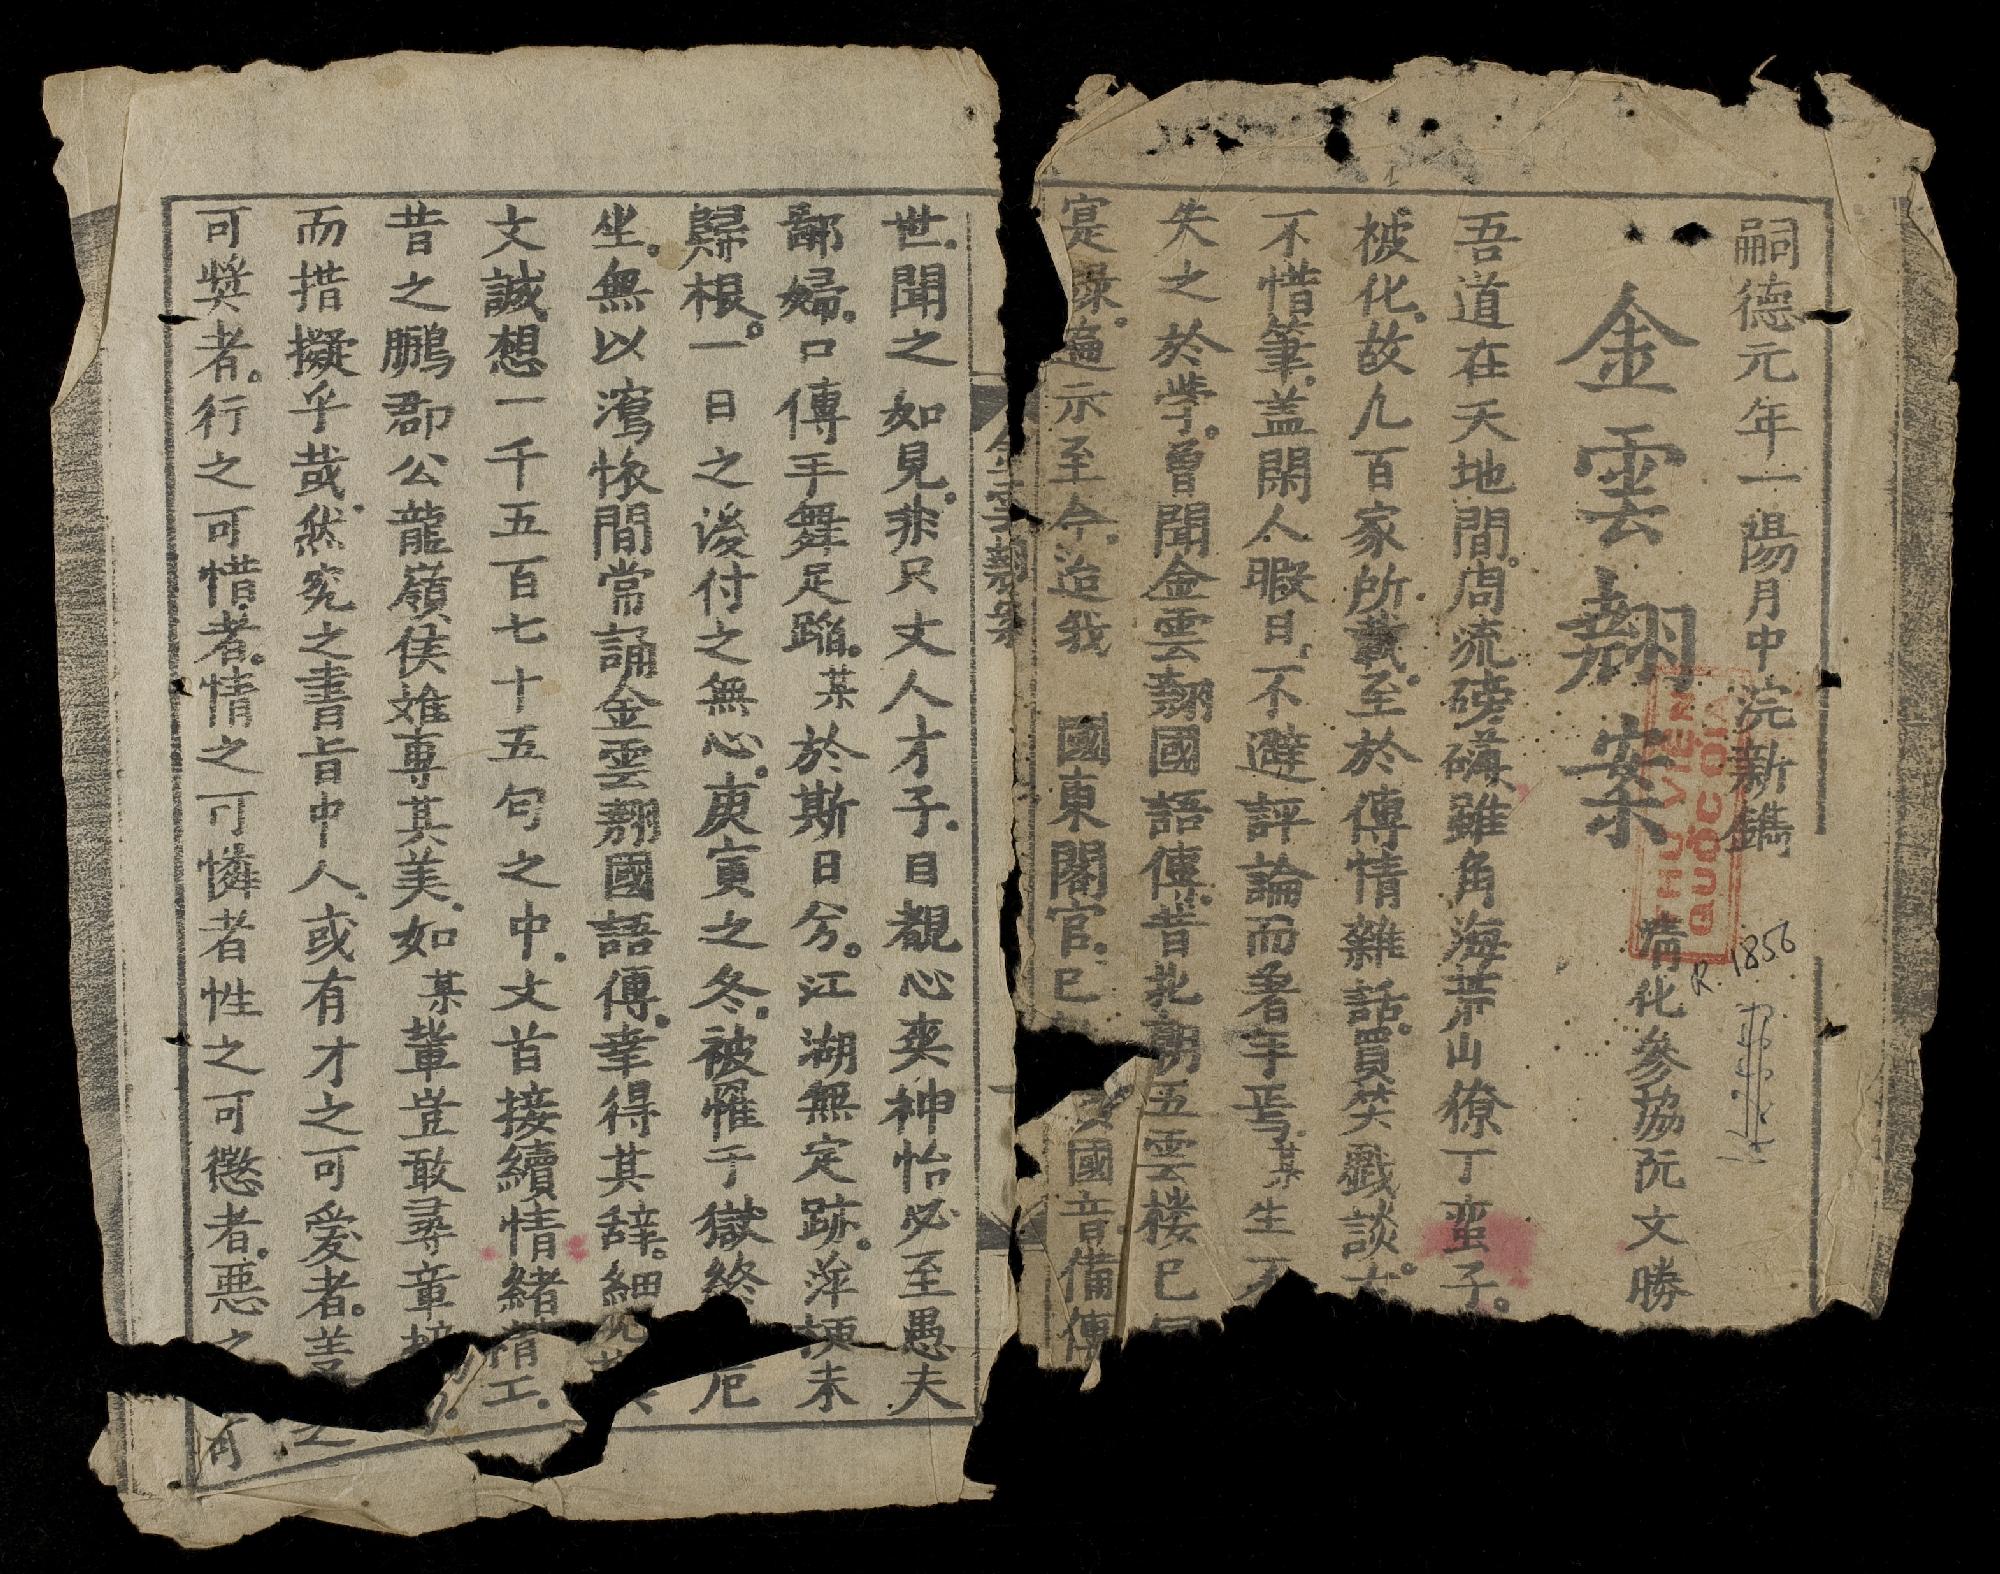 嗣德元年一陽月中浣新鐫
金雲翹案
清化參協阮文勝
吾道在天地間。周流磅礴雖角海荒山獠丁蛮子。
被化。故九百家所載。至於傳情雜話。買笑戲談。
不惜筆。盖閑人暇日。不避評論而畧年焉。某生
失之於學。曾聞金雲翹國語傳。昔黎朝五雲楼已
寔錄。遍示至今。迨我 國東閣官。已 國音。備傳
金雲翹案
世。聞之如見。非只文人才子。目覩心爽神怡必至愚夫
鄙婦。口傳手舞足蹈。某於斯日兮。江湖無定跡。萍梗未
歸根。一日之後付之無心。庚寅之冬。被罹于獄終 厄
坐。無以瀉悵間當誦金雲翹國語傳。幸得其辞。細
文誠想一千五百七十五句之中。文首接續情緒精工。
昔之鵬郡公龍嶺侯雄專其美。如某輩豈敢尋章
而措擬乎哉。然究之書旨中人。或有才之可愛者。善之
可獎者。行之可惜者。情之可憐者性之可懲者。惡之可
THƯ VIỆN
QUỐC GIA
R. 1856